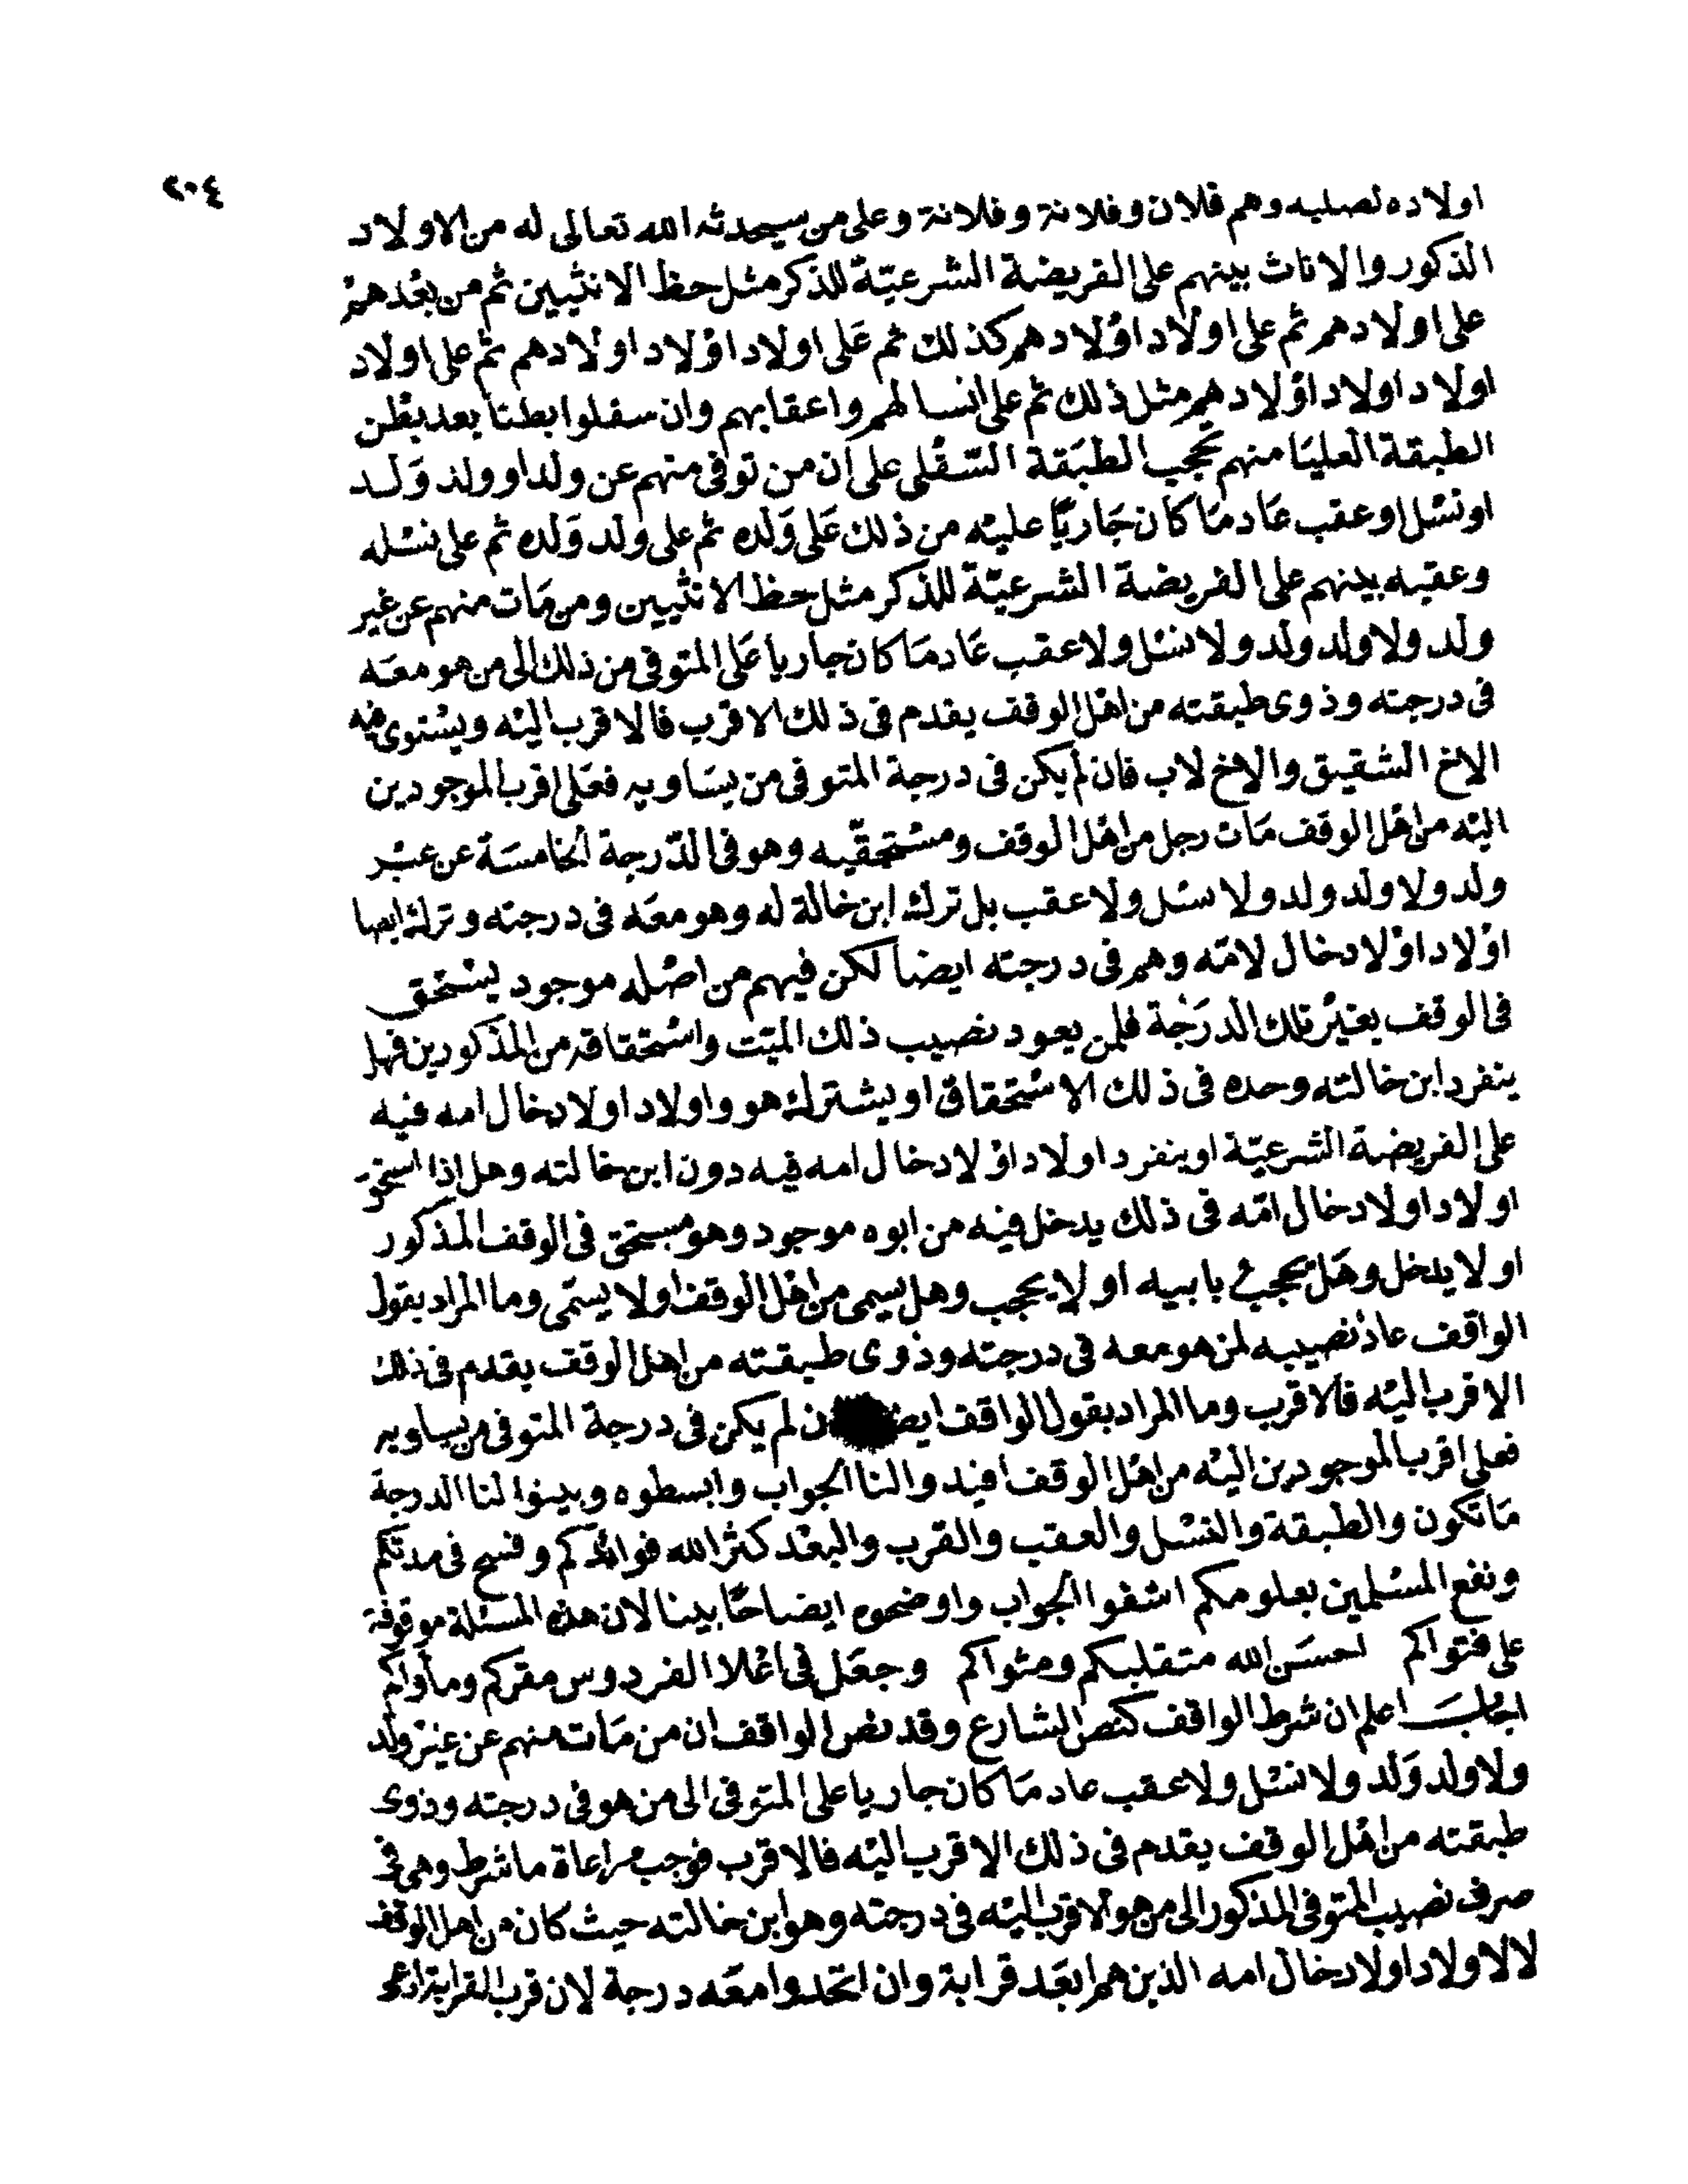 ٢٠٤
اولاده لصلبه وهم فلان وفلانة وفلانة وعلى من سيحدثه الله تعالى له من الاولاد
الذكور والاناث بينهم على الفريضة الشرعيّة للذكر مثل حظ الانثيين ثم من بعدهم
على اولادهم ثم على اولاد اولادهم كذلك ثم على اولاد اولاد اولادهم ثم على اولاد
اولاد اولاد اولادهم مثل ذلك ثم على انسالهم واعقابهم وان سفلوا بطنا بعد بطن
الطبقة العليا منهم تحجب الطبقة السّفلى على ان من توفى منهم عن ولد او ولد وَلد
او نسل او عقب عَاد مَا كان جَاريًا عليه من ذلك عَلى وَلده ثم على ولد وَلده ثم على نسله
وعقبه بينهم على الفريضة الشرعيّة للذكر مثل حظ الانثيين ومن مَات منهم عن غير
ولد ولا ولد ولد ولا نسل ولا عقب عَاد مَا كان جاريا عَلى المتوفى من ذلك الى من هو معَه
فى درجته وذوى طبقته من اهل الوقف يقدم فى ذلك الاقرب فالاقرب اليه ويستوى فيه
الاخ الشقيق والاخ لاب فان لم يكن فى درجة المتوفى من يسَاويه فعَلى اقرب الموجودين
اليه من اهل الوقف مَات رجل من اهل الوقف ومستحقّيه وهو فى الدّرجة الخامسَة عن غير
ولد ولا ولد ولد ولا نسل ولا عقب بل ترك ابن خالة له وهو معَه فى درجته وترك ايضا
اولاد اولاد خال لامّه وهم فى درجته ايضا لكن فيهم من اصله موجود يستحق
فى الوقف بغير تلك الدرَجة فلمن يعود نصيب ذلك الميّت واستحقاقه من المذكورين فهل
ينفرد ابن خالته وحده فى ذلك الاستحقاق او يشترك هو واولاد اولاد خال امه فيه
على الفريضة الشرعيّة او ينفرد اولاد اولاد خال امه فيه دون ابن خالته وهل اذا استحق
اولاد اولاد خال امّه فى ذلك يدخل فيه من ابوه موجود وهو مستحق فى الوقف المذكور
او لا يدخل وهَل يحجب بابيه او لا يحجب وهل يسمى من اهل الوقف او لا يسمّى وما المراد بقول
الواقف عاد نصيبه لمن هو معه فى درجته وذوى طبقته من اهل الوقف يقدم فى ذلك
الاقرب اليه فالاقرب وما المراد بقول الواقف ان لم يكن فى درجة المتوفى من يساويه
فعلى اقرب الموجودين اليه من اهل الوقف افيدوا لنا الجواب وابسطوه وبينوا لنا الدرجة
مَا تكون والطبقة والنسل والعقب والقرب والبعد كثر الله فوائدكم وفسح فى مدتكم
ونفع المسلمين بعلومكم اشفوا الجواب واوضحوه ايضاحًا بينا لان هذه المسئلة موقوفة
على فتواكم احسَن الله متقلبكم ومثواكم وجعَل فى اعلا الفردوس مقركم ومأواكم
اجابَ اعلم ان شرط الواقف كنص الشارع وقد نص الواقف ان من مَات منهم عن غير ولد
ولا ولد وَلد ولا نسل ولا عقب عاد مَا كان جاريا على المتوفى الى من هو فى درجته وذوى
طبقته من اهل الوقف يقدم فى ذلك الاقرب اليه فالاقرب فوجب مراعاة ما شرط وهى فى
صرف نصيب المتوفى المذكور الى من هو الاقرب اليه فى درجته وهو ابن خالته حيث كان من اهل الوقف
لا لاولاد اولاد خال امه الذين هم ابعَد قرابة وان اتحدوا معَه درجة لان قرب القرابة